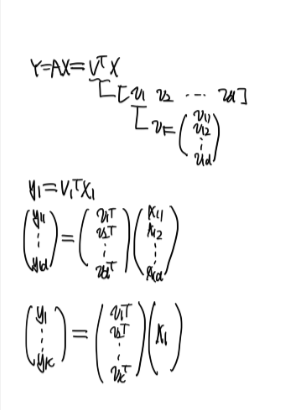 Y=AX=VᵀX
[[v1 v2 --- vd]
[v1=(v11 v12 ⋮ v1d)
y1=V1ᵀX1
(y11 ⋮ y1d)=(v1ᵀ v2ᵀ ⋮ vdᵀ)(x11 x12 ⋮ x1d)
(y1 ⋮ yk)=(v1ᵀ v2ᵀ ⋮ vkᵀ)(x1)